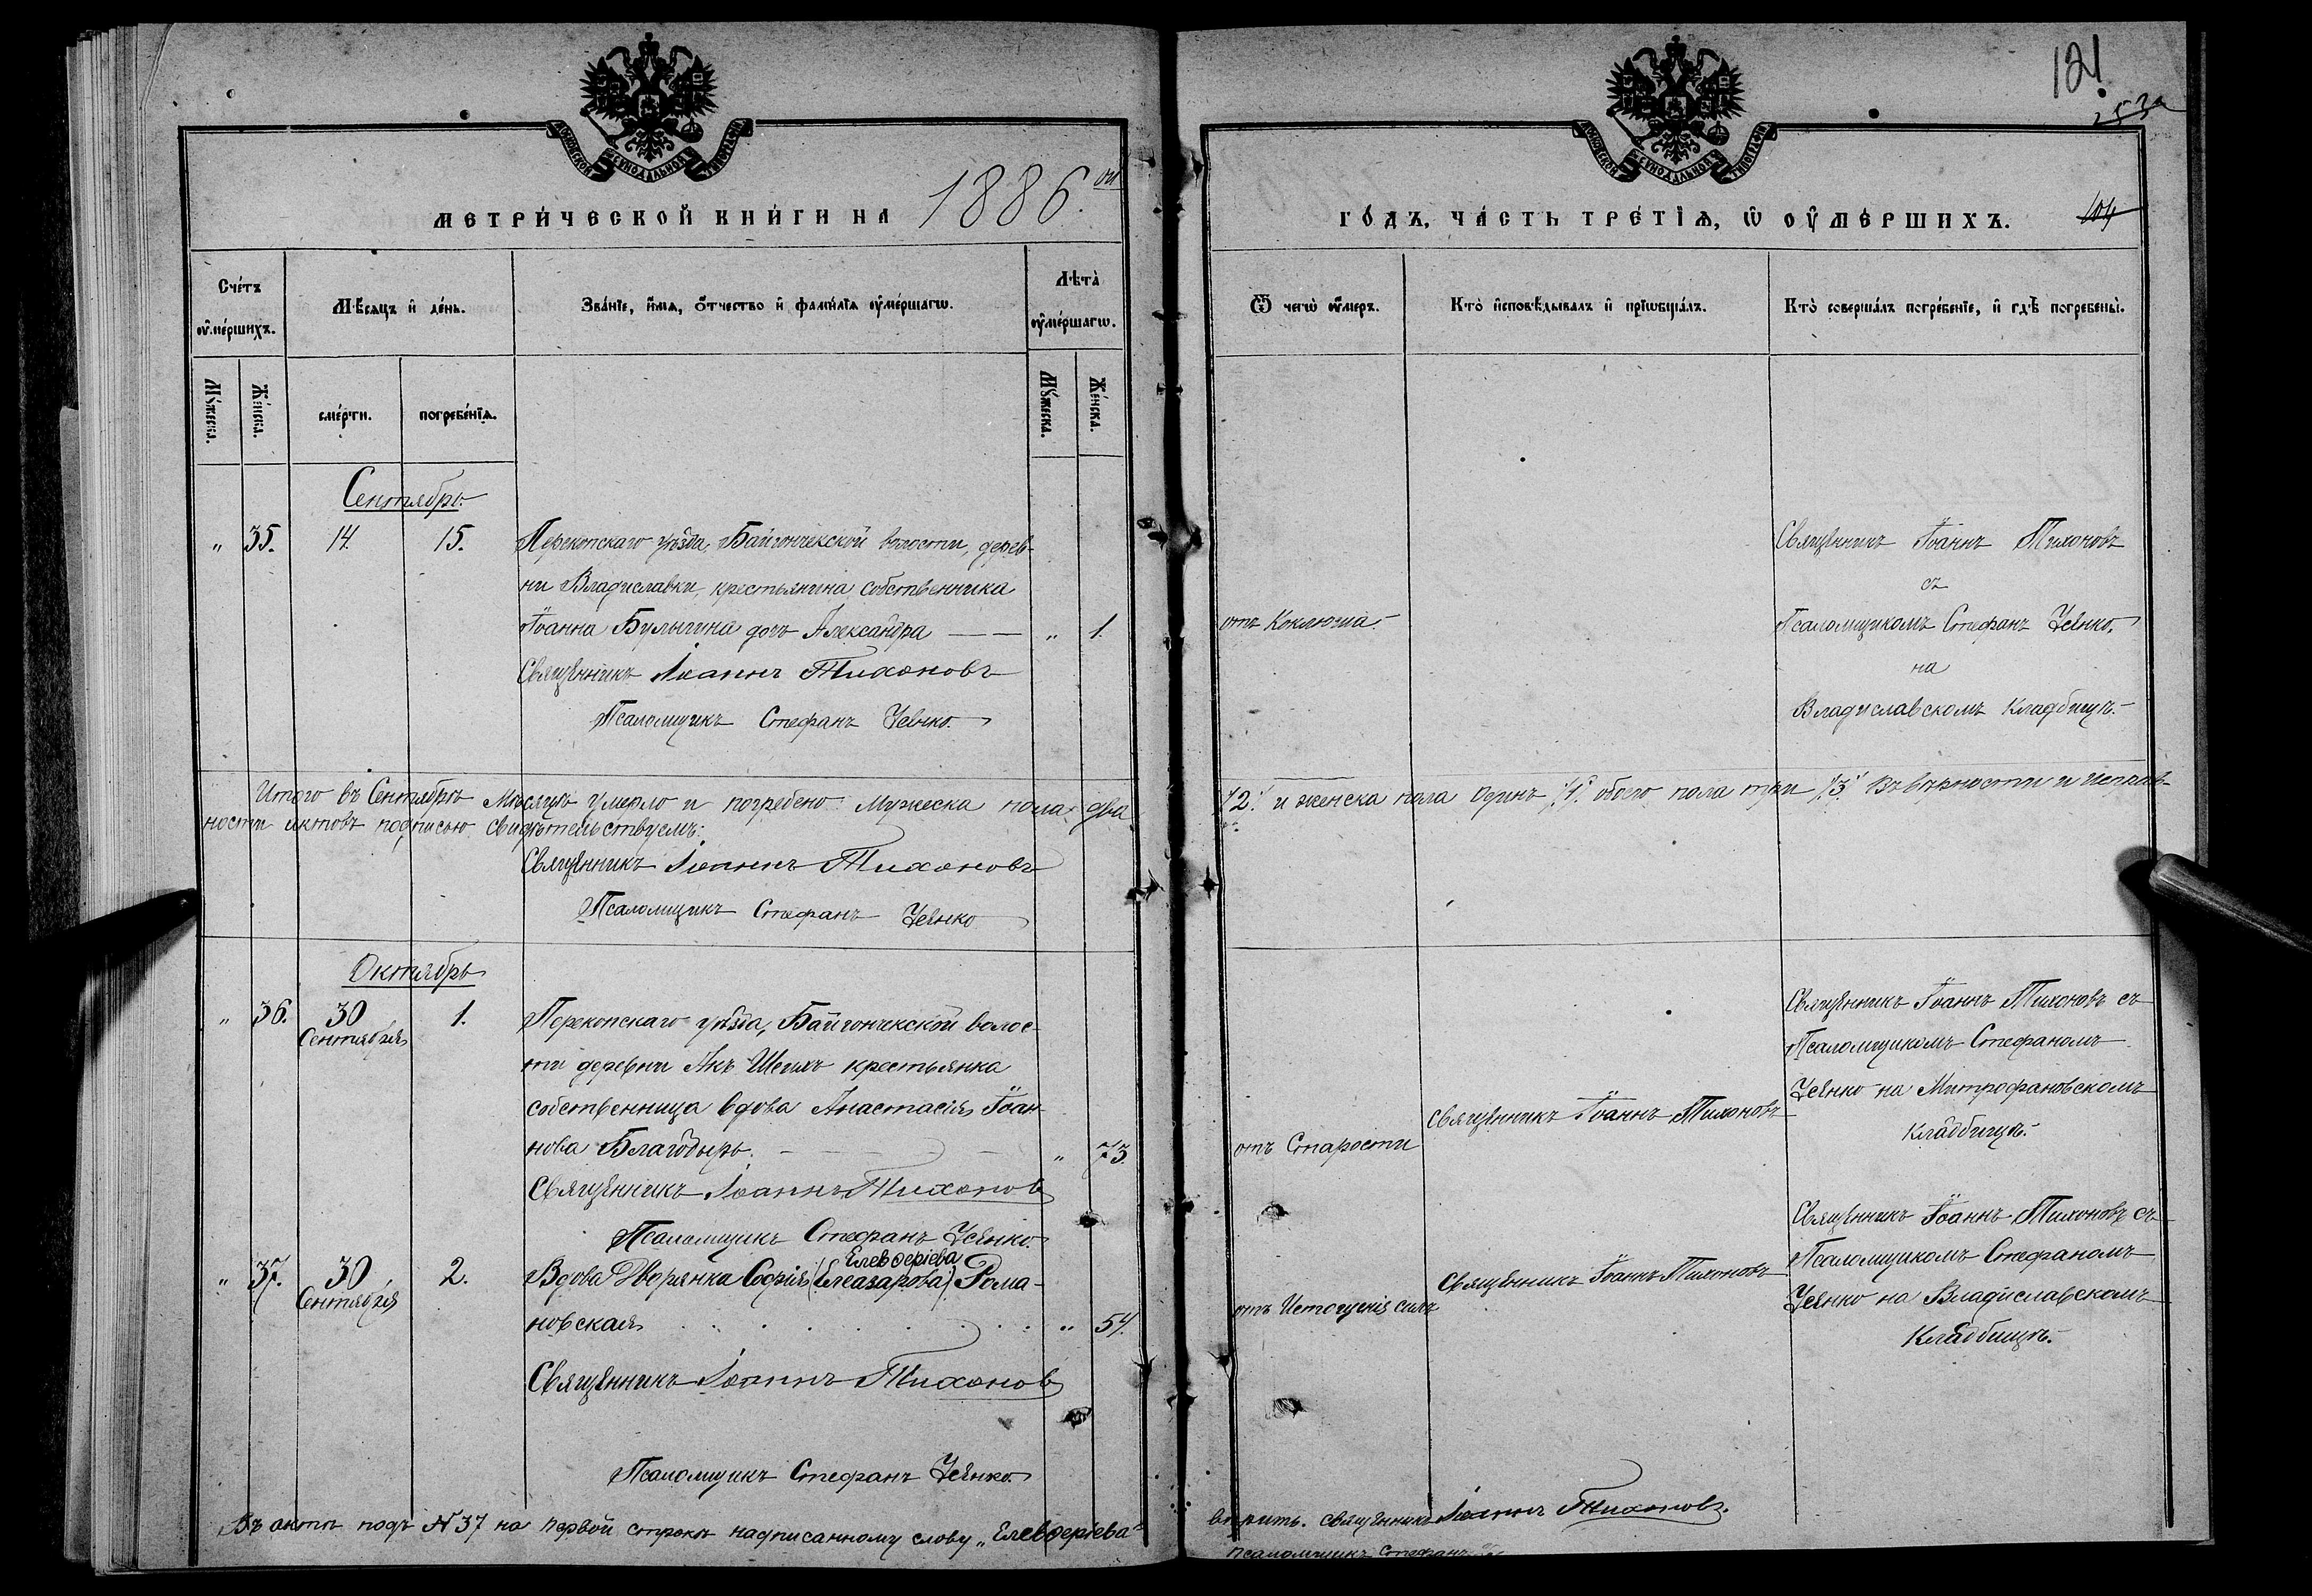 121
253а
МОСКОВСКОЙ СѴНОДАЛЬНОЙ ТѴПОГРАФІИ
МОСКОВСКОЙ СѴНОДАЛЬНОЙ ТѴПОГРАФІИ
МЕТРИ́ЧЕСКОЙ КНИ́ГИ НА 1886.ой
ГО́ДЪ, ЧА́СТЬ ТРЕ́ТІѦ, Ѡ ОУ҆МЕ́РШИХЪ.
104
Сче́тъ оу҆ме́ршихъ.
Мѣ́сѧцъ и҆ де́нь.
Зва́ніе, и҆́мѧ, ѻ҆́тчество и҆ фами́лїѧ оу҆ме́ршагѡ.
Лѣта̀ оу҆ме́ршагѡ.
Ѿ чегѡ̀ оу҆́меръ.
Кто̀ и҆сповѣ́дывалъ и҆ прїѡбща́лъ.
Кто̀ соверша́лъ погребе́нїе, и҆ гдѣ̀ погребены̀.
Мꙋ́жеска.
Же́нска.
сме́рти.
погребе́нїѧ.
Мꙋ́жеска.
Же́нска.
Сентябрь.
„ 35. 14. 15. Перекопскаго уѣзда, Байгончекской волости, дерев-
ни Владиславки, крестьянина собственника
Іоанна Булыгина дочь Александра — — „ 1.
Священникъ Іоаннъ Тихоновъ
Псаломщикъ Стефанъ
отъ Коклюша.
Священникъ Іоаннъ Тихоновъ
съ
Псаломщикомъ Стефанъ
на
Владиславскомъ Кладбищѣ.
Итого въ Сентябрѣ Мѣсяцѣ умерло и погребено: Мужеска пола два
/2./ и женска пола одинъ /1./ обоего пола три /3./ Въ вѣрности и исправ-
ности актовъ подписью свидѣтельствуемъ:
Священникъ Іоаннъ Тихоновъ
Псаломщикъ Стефанъ
Октябрь
„ 36. 30 Сентября 1. Перекопскаго уѣзда, Байгончекской волос-
ти деревни Акъ Шеихъ крестьянка
собственница вдова Анастасія Іоан-
нова Благодыръ. — — — „ 73.
Священникъ Іоаннъ Тихоновъ
Псаломщикъ Стефанъ
отъ Старости
Священникъ Іоаннъ Тихоновъ
Священникъ Іоаннъ Тихоновъ съ
Псаломщикомъ Стефаномъ
на Митрофановскомъ
Кладбищѣ.
Елевѳеріева
„ 37. 30 Сентября 2. Вдова Дворянка Софія (Елеазарова) Рома-
новская . . . . . . „ 54.
Священникъ Іоаннъ Тихоновъ
Псаломщикъ Стефанъ
отъ Истощенія силъ
Священникъ Іоаннъ Тихоновъ
Священникъ Іоаннъ Тихоновъ съ
Псаломщикомъ Стефаномъ
на Владиславскомъ
Кладбищѣ.
Въ актѣ подъ № 37 на первой строкѣ надписанному слову „Елевѳеріева"
вѣрить. священникъ Іоаннъ Тихоновъ.
Псаломщикъ Стефанъ